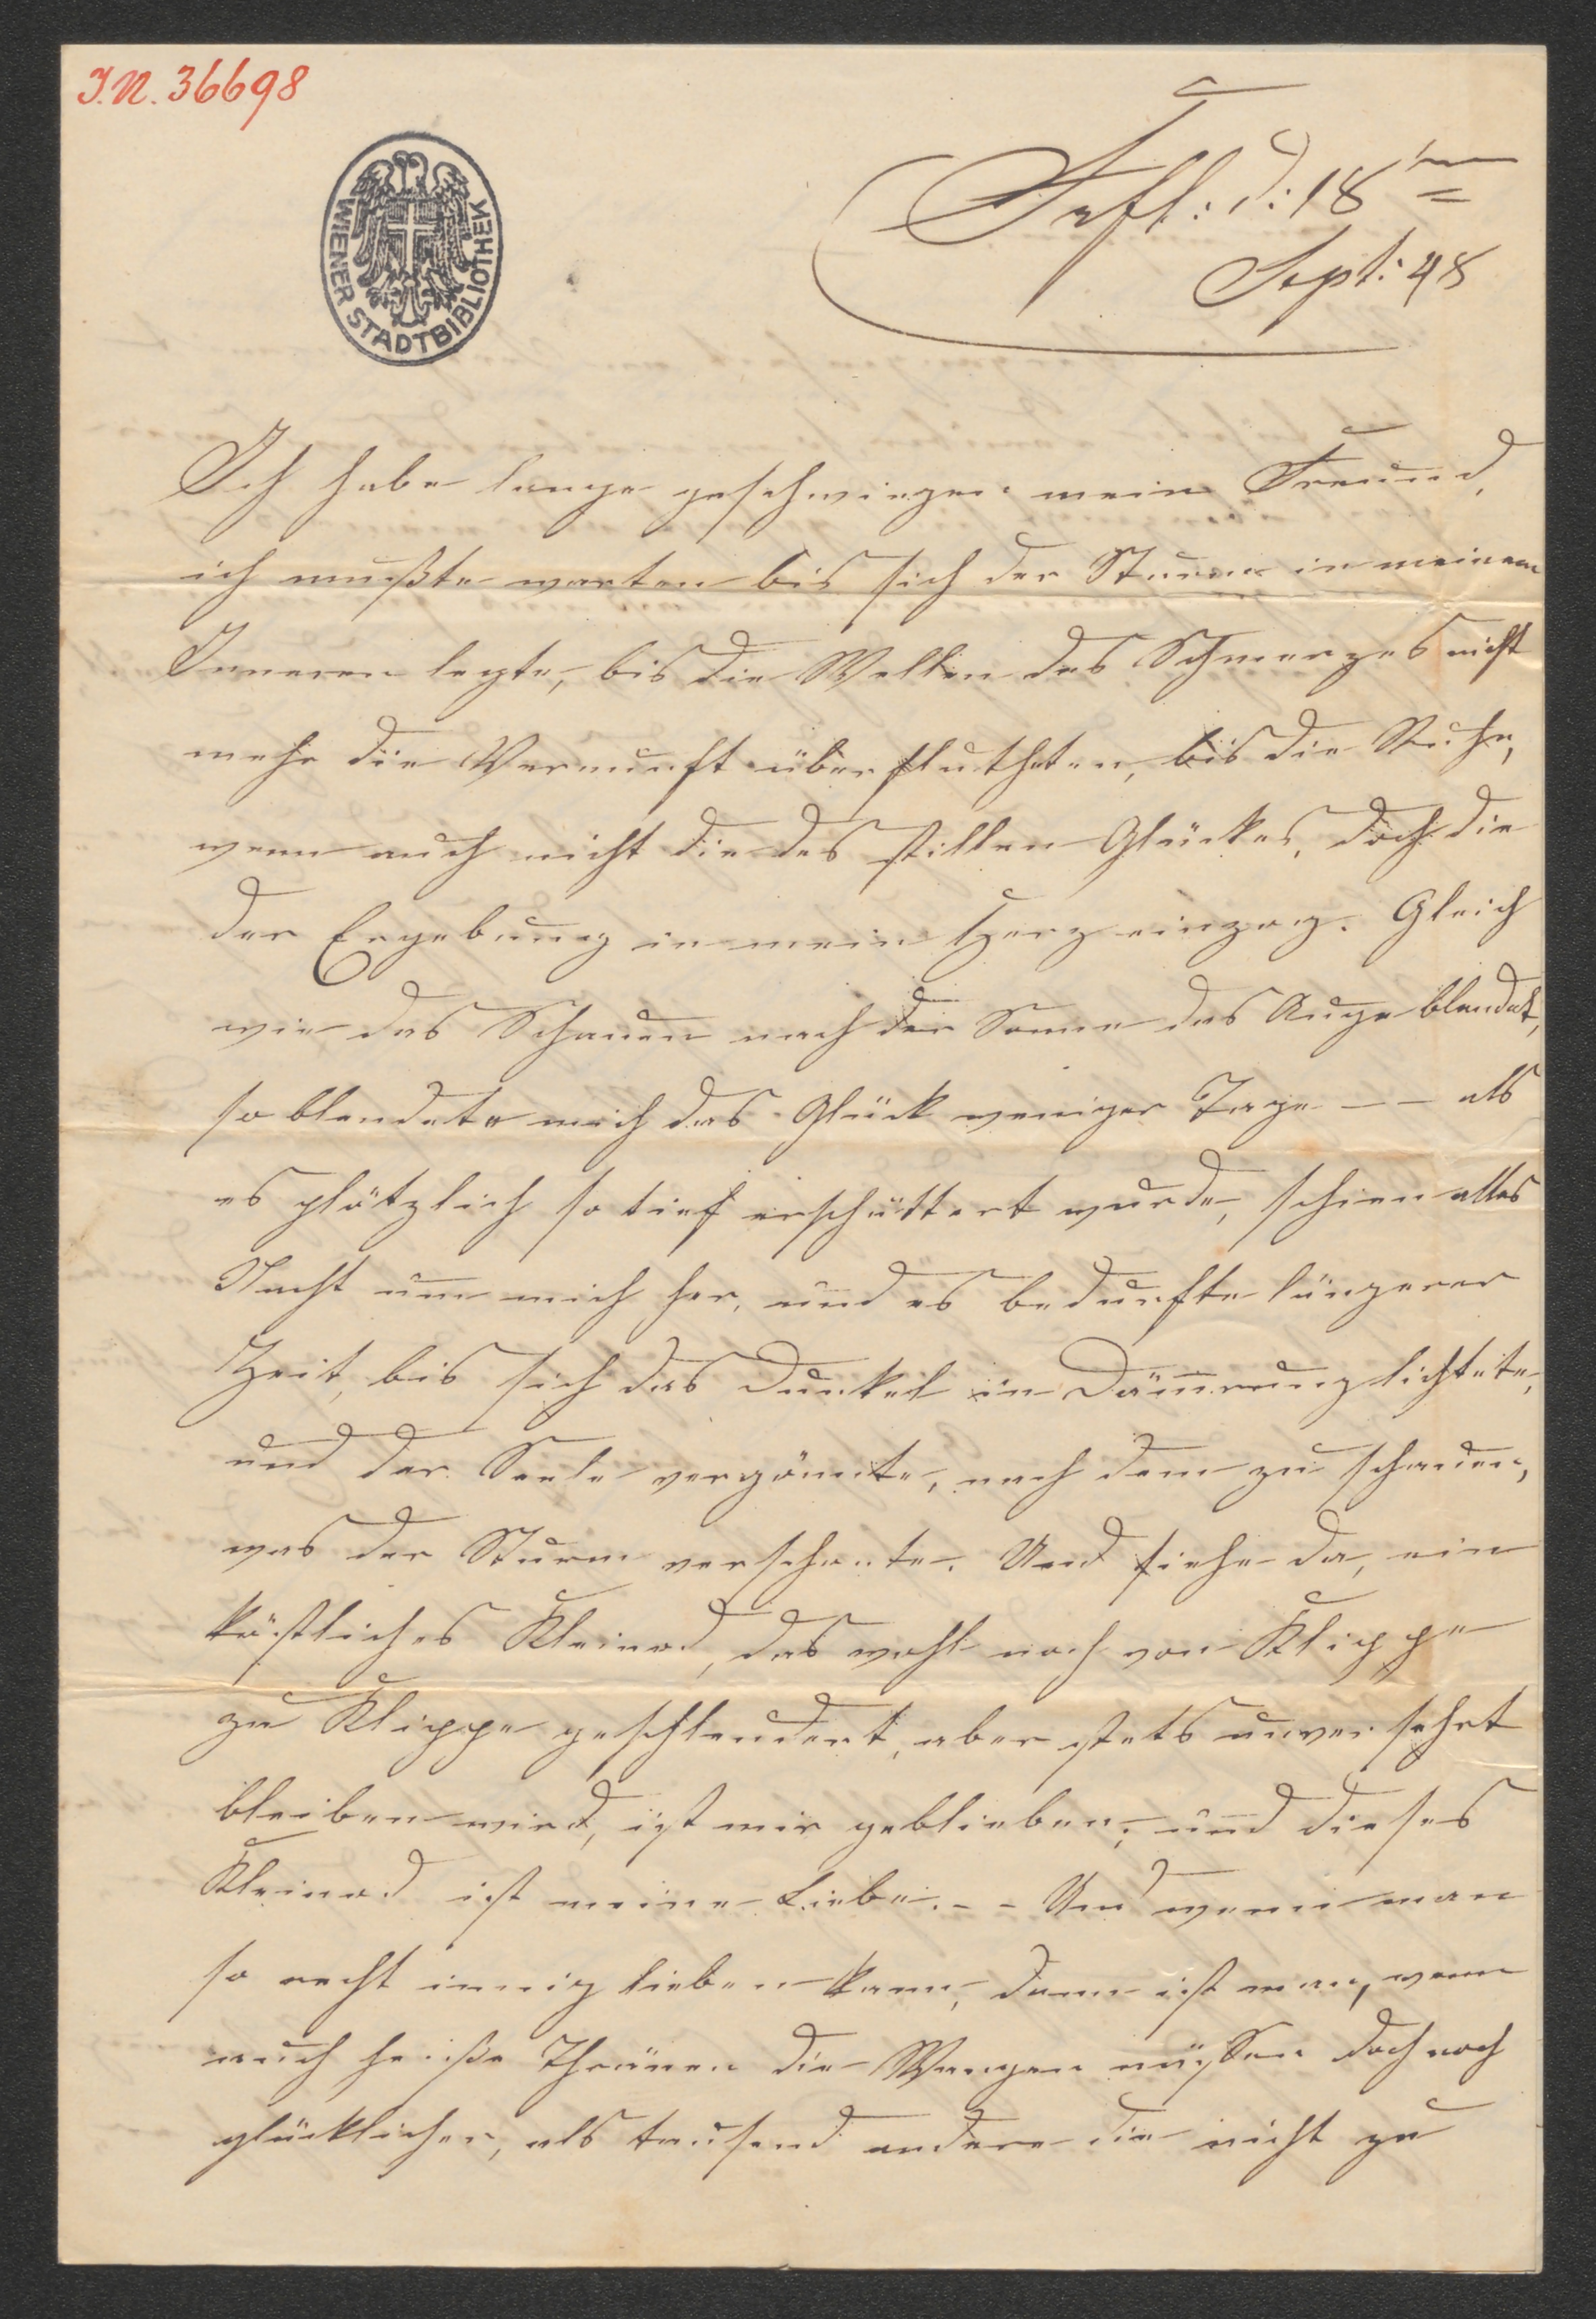 I.N. 36698
WIENER STADTBIBLIOTHEK
d: 18
Sept: 48
Ich habe lange geschwiegen mein Freund,
ich mußte warten bis sich der Sturm in meinem
Inneren legte, bis die Wellen des Schmerzes nicht
mehr die Vernunft überflutheten, bis die Ruhe,
wenn auch nicht die des stillen Glückes, doch die
der Ergebung in mein Herz einzog. Gleich
wie das Schauen nach der Sonne das Auge blendet,
so blendete mich das Glück weniger Tage — — als
es plötzlich so tief erschüttert wurde, schien alles
Nacht um mich her, und es bedurfte längerer
Zeit, bis sich das Dunkel in Dämmrung lichtete,
und der Seele vergönnte, nach dem zu schauen,
was der Sturm verschonte. Und siehe da, ein
köstliches Kleinod, das wohl noch von Klippe
zu Klippe geschleudert, aber stets unversehrt
bleiben wird, ist mir geblieben; und dieses
Kleinod ist meine Liebe. – – Und wenn man
so recht innig lieben kann, dann ist man, wenn
auch heiße Thränen die Wangen nässen doch noch
glücklicher, als tausend andere die nicht zu